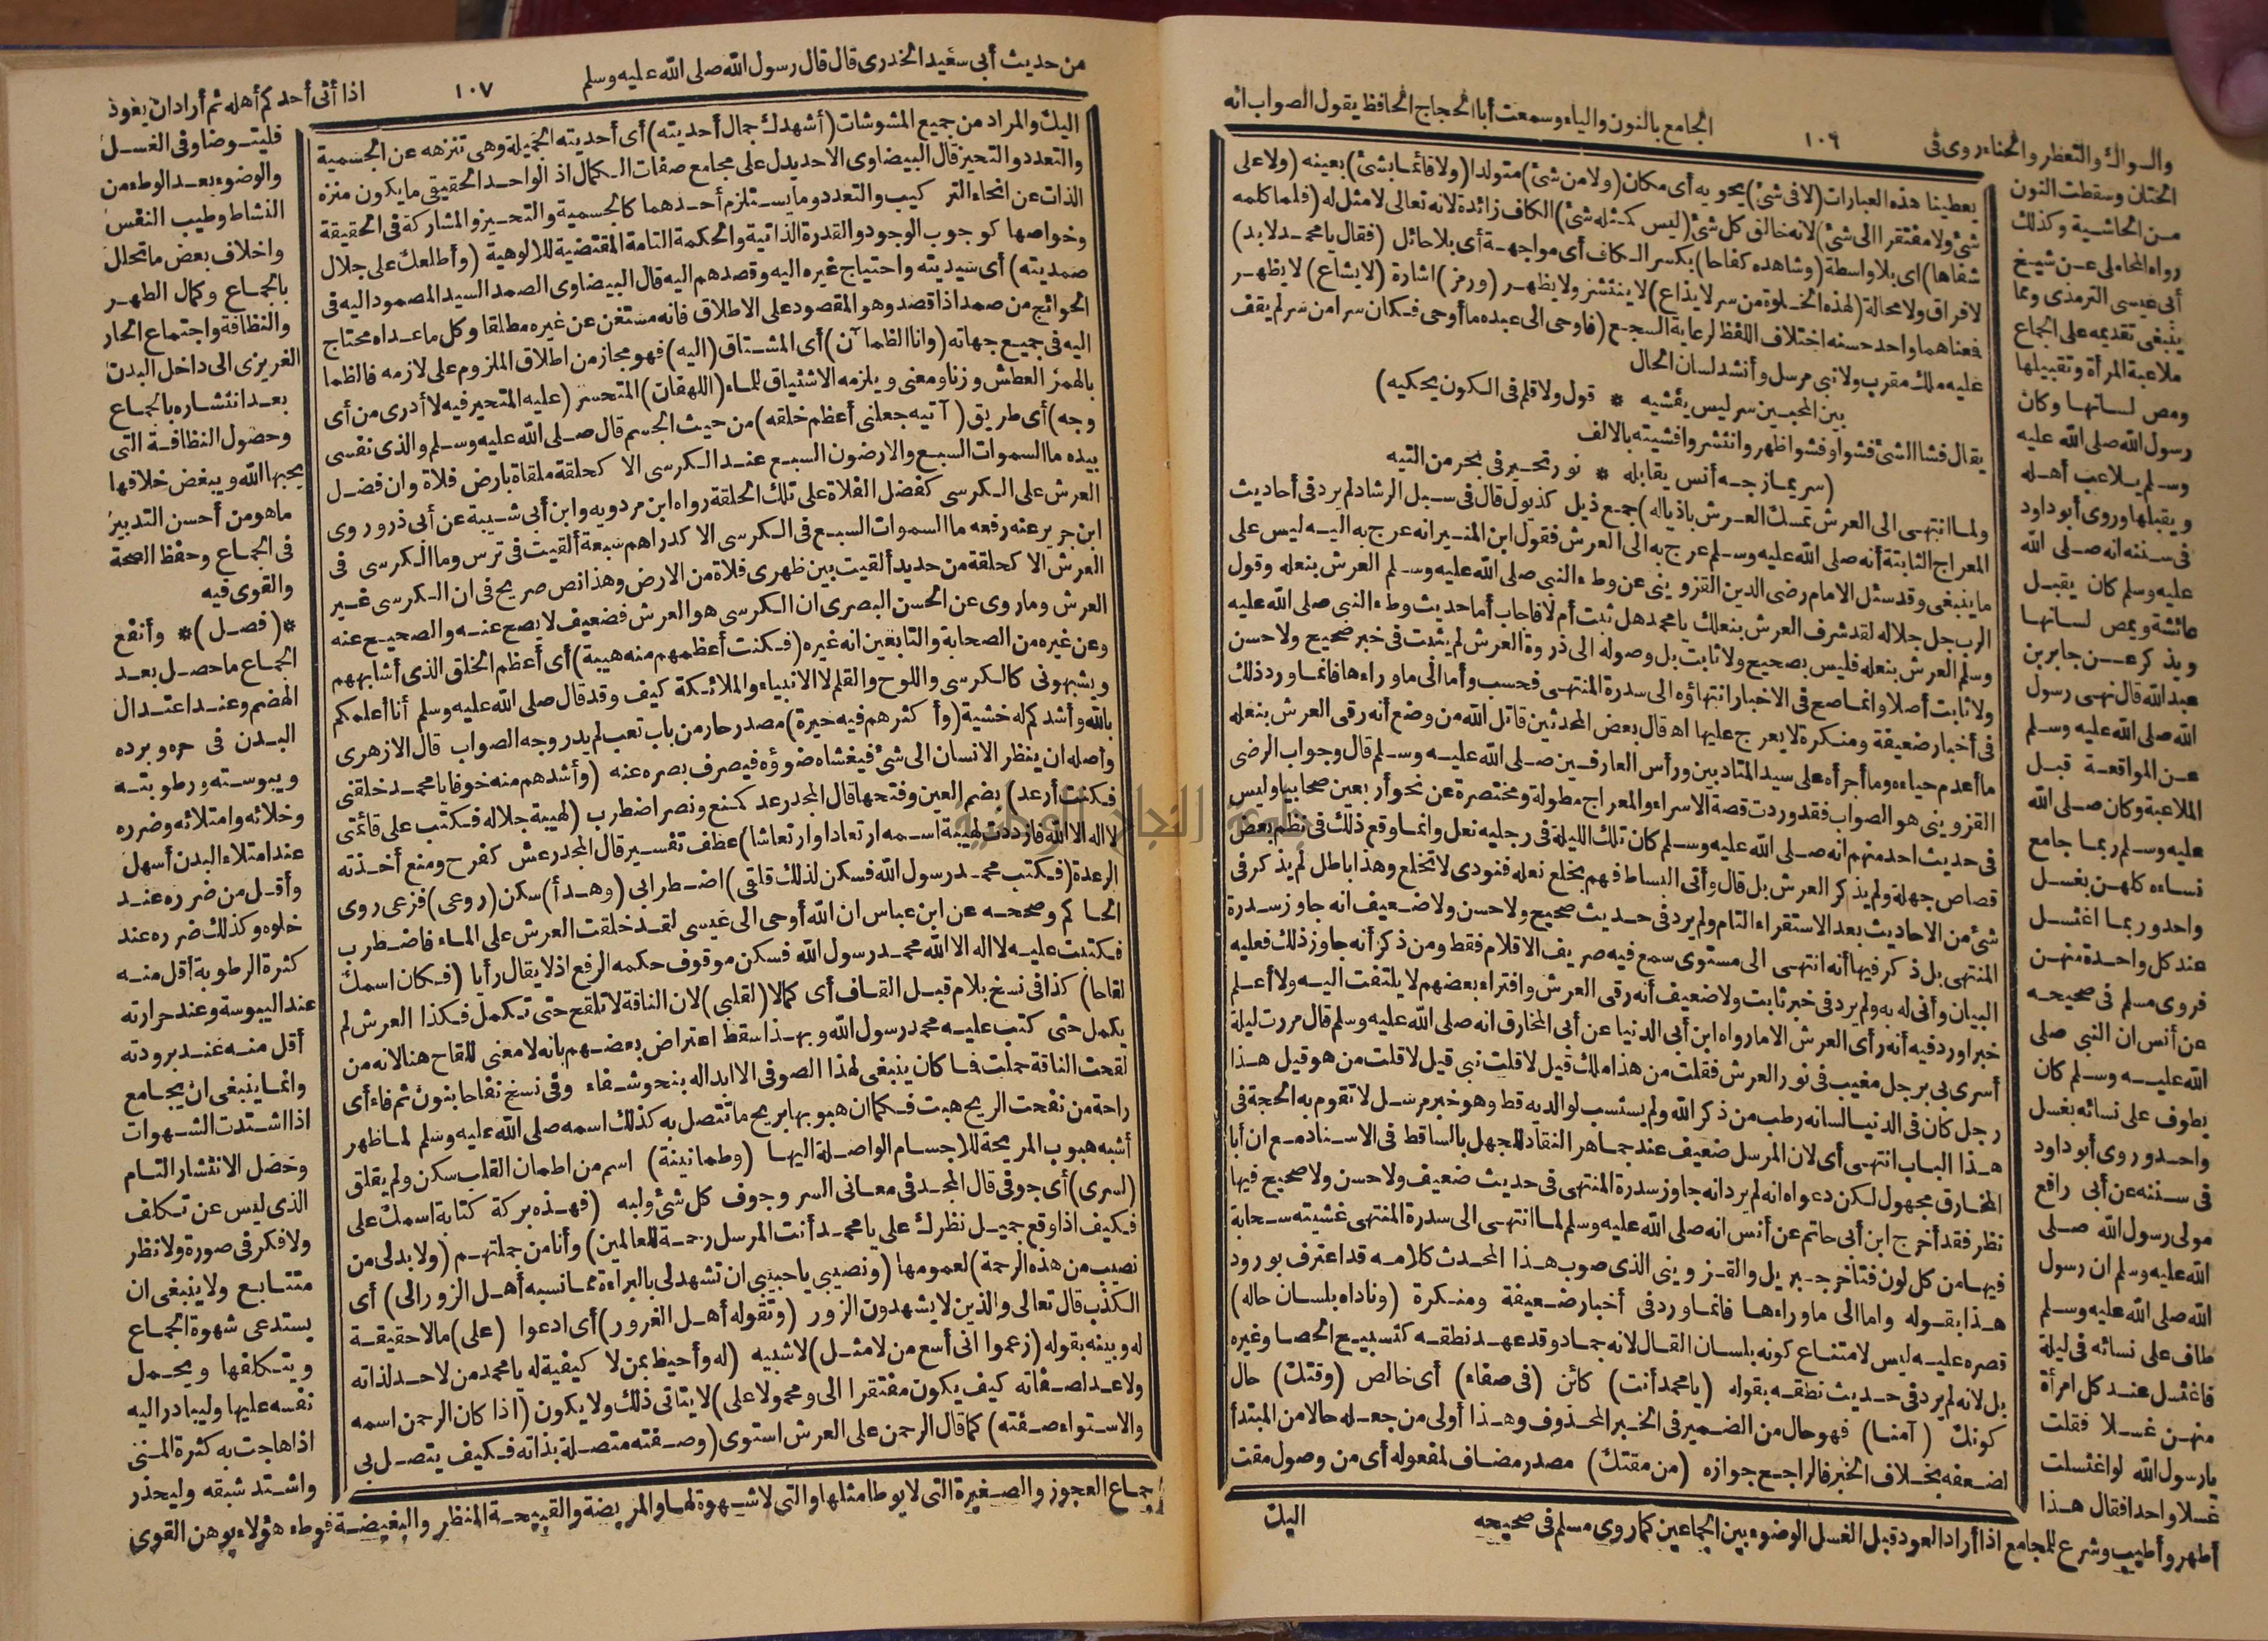 والسواك والتعطر والحناء روى فى
١٠٦
الجامع بالنون والياء وسمعت أبا الحجاج الحافظ يقول الصواب انه
الختان وسقطت النون
من الحاشية وكذلك
رواه المحاملى عن شيخ
أبى عيسى الترمذى ومما
ينبغى تقديمه على الجماع
ملاعبة المرأة وتقبيلها
ومص لسانها وكان
رسول الله صلى الله عليه
وسلم يلاعب أهله
ويقبلها وروى أبو داود
فى سننه انه صلى الله
عليه وسلم كان يقبل
عائشة ويمص لسانها
ويذكر عن جابر بن
عبد الله قال نهى رسول
الله صلى الله عليه وسلم
عن المواقعة قبل
الملاعبة وكان صلى الله
عليه وسلم ربما جامع
نساءه كلهن بغسل
واحد وربما اغتسل
عند كل واحدة منهن
فروى مسلم فى صحيحه
عن أنس ان النبى صلى
الله عليه وسلم كان
يطوف على نسائه بغسل
واحد وروى أبو داود
فى سننه عن أبى رافع
مولى رسول الله صلى
الله عليه وسلم ان رسول
الله صلى الله عليه وسلم
طاف على نسائه فى ليلة
فاغتسل عند كل امرأة
منهن غسلا فقلت
يارسول الله لو اغتسلت
غسلا واحدا فقال هذا
أطهر وأطيب وشرع للمجامع اذا أراد العود قبل الغسل الوضوء بين الجماعين كما روى مسلم فى صحيحه
يعطينا هذه العبارات (لا فى شئ) يحويه أى مكان (ولا من شئ) متولدا (ولا قائما بشئ) بعينه (ولا على
شئ ولا مفتقرا الى شئ) لانه خالق كل شئ (ليس كمثله شئ) الكاف زائدة لانه تعالى لا مثل له (فلما كلمه
شفاها) اى بلا واسطة (وشاهده كفاحا) بكسر الكاف أى مواجهة أى بلا حائل (فقال يا محمد لا بد)
لا فراق ولا محالة (لهذه الخلوة من سر لا يذاع) لا ينتشر ولا يظهر (ورمز) اشارة (لا يشاع) لا يظهر
فمعناهما واحد حسنه اختلاف اللفظ لرعاية السجع (فاوحى الى عبده ما أوحى فكان سرا من سر لم يقف
عليه ملك مقرب ولا نبى مرسل وأنشد لسان الحال
بين المحبين سر ليس يفشيه * قول ولا قلم فى الكون يحكيه)
يقال فشا الشئ فشوا وفشوا ظهر وانتشر وافشيته بالالف
(سر يمازجه أنس يقابله * نور تحير فى بحر من التيه
ولما انتهى الى العرش تمسك العرش باذياله) جمع ذيل كذيول قال فى سبل الرشاد لم يرد فى أحاديث
المعراج الثابتة أنه صلى الله عليه وسلم عرج به الى العرش فقول ابن المنير انه عرج به اليه ليس على
ما ينبغى وقد سئل الامام رضى الدين القزوينى عن وطء النبى صلى الله عليه وسلم العرش بنعله وقول
الرب جل جلاله لقد شرف العرش بنعلك يا محمد هل ثبت أم لا فاجاب أما حديث وطء النبى صلى الله عليه
وسلم العرش بنعله فليس بصحيح ولا ثابت بل وصوله الى ذروة العرش لم يثبت فى خبر صحيح ولا حسن
ولا ثابت أصلا وانما صح فى الاخبار انتهاؤه الى سدرة المنتهى فحسب وأما الى ما وراءها فانما ورد ذلك
فى أخبار ضعيفة ومنكرة لا يعرج عليها اه قال بعض المحدثين قاتل الله من وضع أنه رقى العرش بنعله
ما أعدم حياءه وما أجرأه على سيد المتادبين ورأس العارفين صلى الله عليه وسلم قال وجواب الرضى
القزوينى هو الصواب فقد وردت قصة الاسراء والمعراج مطولة ومختصرة عن نحو أربعين صحابيا وليس
فى حديث احد منهم انه صلى الله عليه وسلم كان تلك الليلة فى رجليه نعل وانما وقع ذلك فى نظم بعض
قصاص جهلة ولم يذكر العرش بل قال وأتى البساط فهم بخلع نعله فنودى لا تخلع وهذا باطل لم يذكر فى
شئ من الاحاديث بعد الاستقراء التام ولم يرد فى حديث صحيح ولا حسن ولا ضعيف انه جاوز سدرة
المنتهى بل ذكر فيها أنه انتهى الى مستوى سمع فيه صريف الاقلام فقط ومن ذكر أنه جاوز ذلك فعليه
البيان وأنى له به ولم يرد فى خبر ثابت ولا ضعيف أنه رقى العرش وافتراء بعضهم لا يلتفت اليه ولا أعلم
خبرا ورد فيه أنه رأى العرش الا ما رواه ابن أبى الدنيا عن أبى المخارق انه صلى الله عليه وسلم قال مررت ليلة
أسرى بى برجل مغيب فى نور العرش فقلت من هذا ملك قيل لا قلت نبى قيل لا قلت من هو قيل هذا
رجل كان فى الدنيا لسانه رطب من ذكر الله ولم يستسب لوالديه قط وهو خبر مرسل لا تقوم به الحجة فى
هذا الباب انتهى أى لان المرسل ضعيف عند جماهر النقاد للجهل بالساقط فى الاسناد مع ان أبا
المخارق مجهول لكن دعواه انه لم يرد انه جاوز سدرة المنتهى فى حديث ضعيف ولا حسن ولا صحيح فيها
نظر فقد أخرج ابن أبى حاتم عن أنس انه صلى الله عليه وسلم لما انتهى الى سدرة المنتهى غشيته سحابة
فيها من كل لون فتأخر جبريل والقزوينى الذى صوب هذا المحدث كلامه قد اعترف بورود
هذا بقوله واما الى ما وراءها فانما ورد فى أخبار ضعيفة ومنكرة (وناداه بلسان حاله)
قصره عليه ليس لامتناع كونه بلسان القال لانه جماد وقد عهد نطقه كتسبيح الحصا وغيره
بل لانه لم يرد فى حديث نطقه بقوله (يا محمد أنت) كائن (فى صفاء) أى خالص (وقتك) حال
كونك (آمنا) فهو حال من الضمير فى الخبر المحذوف وهذا أولى من جعله حالا من المبتدأ
لضعفه بخلاف الخبر فالراجح جوازه (من مقتك) مصدر مضاف لمفعوله أى من وصول مقت
اليك
من حديث أبى سعيد الخدرى قال قال رسول الله صلى الله عليه وسلم
١٠٧
اذا أتى أحدكم أهله ثم أراد ان يعود
اليك والمراد من جميع المشوشات (أشهدك جمال أحديته) أى أحديته الجميلة وهى تنزهه عن الجسمية
والتعدد والتحيز قال البيضاوى الاحد يدل على مجامع صفات الكمال اذ الواحد الحقيقى ما يكون منزه
الذات عن انحاء التركيب والتعدد وما يستلزم أحدهما كالجسمية والتحيز والمشاركة فى الحقيقة
وخواصها كوجوب الوجود والقدرة الذاتية والحكمة التامة المقتضية للالوهية (وأطلعك على جلال
صمديته) أى سيديته واحتياج غيره اليه وقصدهم اليه قال البيضاوى الصمد السيد المصمود اليه فى
الحوائج من صمد اذا قصد وهو المقصود على الاطلاق فانه مستغن عن غيره مطلقا وكل ما عداه محتاج
اليه فى جميع جهاته (وانا الظمآن) أى المشتاق (اليه) فهو مجاز من اطلاق الملزوم على لازمه فالظما
بالهمز العطش وزنا ومعنى ويلزمه الاشتياق للماء (اللهفان) المتحسر (عليه المتحير فيه لا أدرى من أى
وجه) أى طريق (آتيه جعلنى أعظم خلقه) من حيث الجسم قال صلى الله عليه وسلم والذى نفسى
بيده ما السموات السبع والارضون السبع عند الكرسى الا كحلقة ملقاة بارض فلاة وان فضل
العرش على الكرسى كفضل الفلاة على تلك الحلقة رواه ابن مردويه وابن أبى شيبة عن أبى ذر وروى
ابن جرير عنه رفعه ما السموات السبع فى الكرسى الا كدراهم سبعة ألقيت فى ترس وما الكرسى فى
العرش الا كحلقة من حديد ألقيت بين ظهرى فلاة من الارض وهذا نص صريح فى ان الكرسى غير
العرش وما روى عن الحسن البصرى ان الكرسى هو العرش فضعيف لا يصح عنه والصحيح عنه
وعن غيره من الصحابة والتابعين انه غيره (فكنت أعظمهم منه هيبة) أى أعظم الخلق الذى أشابههم
ويشبهونى كالكرسى واللوح والقلم لا الانبياء والملائكة كيف وقد قال صلى الله عليه وسلم أنا أعلمكم
بالله وأشدكم له خشية (وأكثرهم فيه حيرة) مصدر حار من باب تعب لم يدر وجه الصواب قال الازهرى
وأصله ان ينظر الانسان الى شئ فيغشاه ضوؤه فيصرف بصره عنه (وأشدهم منه خوفا يا محمد خلقنى
فكنت أرعد) بضم العين وفتحها قال المجد رعد كمنع ونصر اضطرب (لهيبة جلاله فكتب على قائمتى
لا اله الا الله فازددت لهيبة اسمه ارتعادا وارتعاشا) عطف تفسير قال المجد رعش كفرح ومنع أخذته
الرعدة (فكتب محمد رسول الله فسكن لذلك قلقى) اضطرابى (وهدأ) سكن (روعى) فزعى روى
الحاكم وصححه عن ابن عباس ان الله أوحى الى عيسى لقد خلقت العرش على الماء فاضطرب
فكتبت عليه لا اله الا الله محمد رسول الله فسكن موقوف حكمه الرفع اذ لا يقال رأيا (فكان اسمك
لقاحا) كذا فى نسخ بلام قبل القاف أى كمالا (لقلبى) لان الناقة لا تلقح حتى تكمل فكذا العرش لم
يكمل حتى كتب عليه محمد رسول الله وبهذا سقط اعتراض بعضهم بانه لا معنى للقاح هنا لانه من
لقحت الناقة حملت فما كان ينبغى لهذا الصوفى الا ابداله بنحو شفاء وفى نسخ نفاحا بنون ثم فاء أى
راحة من نفحت الريح هبت فكما ان هبوبها يريح ما تتصل به كذلك اسمه صلى الله عليه وسلم لما ظهر
أشبه هبوب المريحة للاجسام الواصلة اليها (وطمانينة) اسم من اطمان القلب سكن ولم يقلق
(لسرى) أى جوفى قال المجد فى معانى السر وجوف كل شئ ولبه (فهذه بركة كتابة اسمك على
فكيف اذا وقع جميل نظرك على يا محمد أنت المرسل رحمة للعالمين) وأنا من جملتهم (ولا بد لى من
نصيب من هذه الرحمة) لعمومها (ونصيبى يا حبيبى ان تشهد لى بالبراءة مما نسبه أهل الزور الى) أى
الكذب قال تعالى والذين لا يشهدون الزور (وتقوله أهل الغرور) أى ادعوا (على) ما لا حقيقة
له وبينه بقوله (زعموا انى أسع من لا مثل) لا شبيه (له وأحيط بمن لا كيفية له يا محمد من لا حد لذاته
ولا عد لصفاته كيف يكون مفتقرا الى ومحمولا على) لا يتاتى ذلك ولا يكون (اذا كان الرحمن اسمه
والاستواء صفته) كما قال الرحمن على العرش استوى (وصفته متصلة بذاته فكيف يتصل بى
فليتوضا وفى الغسل
والوضوء بعد الوطء من
النشاط وطيب النفس
واخلاف بعض ما تحلل
بالجماع وكمال الطهر
والنظافة واجتماع الحار
الغريزى الى داخل البدن
بعد انتشاره بالجماع
وحصول النظافة التى
يحبها الله ويبغض خلافها
ما هو من أحسن التدبير
فى الجماع وحفظ الصحة
والقوى فيه
*(فصل)* وأنفع
الجماع ما حصل بعد
الهضم وعند اعتدال
البدن فى حره وبرده
ويبوسته ورطوبته
وخلائه وامتلائه وضرره
عند امتلاء البدن أسهل
وأقل من ضرره عند
خلوه وكذلك ضرره عند
كثرة الرطوبة أقل منه
عند اليبوسة وعند حرارته
أقل منه عند برودته
وانما ينبغى ان يجامع
اذا اشتدت الشهوات
وحصل الانتشار التام
الذى ليس عن تكلف
ولا فكر فى صورة ولا نظر
متتابع ولا ينبغى ان
يستدعى شهوة الجماع
ويتكلفها ويحمل
نفسه عليها وليبادر اليه
اذا هاجت به كثرة المنى
واشتد شبقه وليحذر
جماع العجوز والصغيرة التى لا يوطا مثلها والتى لا شهوة لها والمريضة والقبيحة المنظر والبغيضة فوطء هؤلاء يوهن القوى